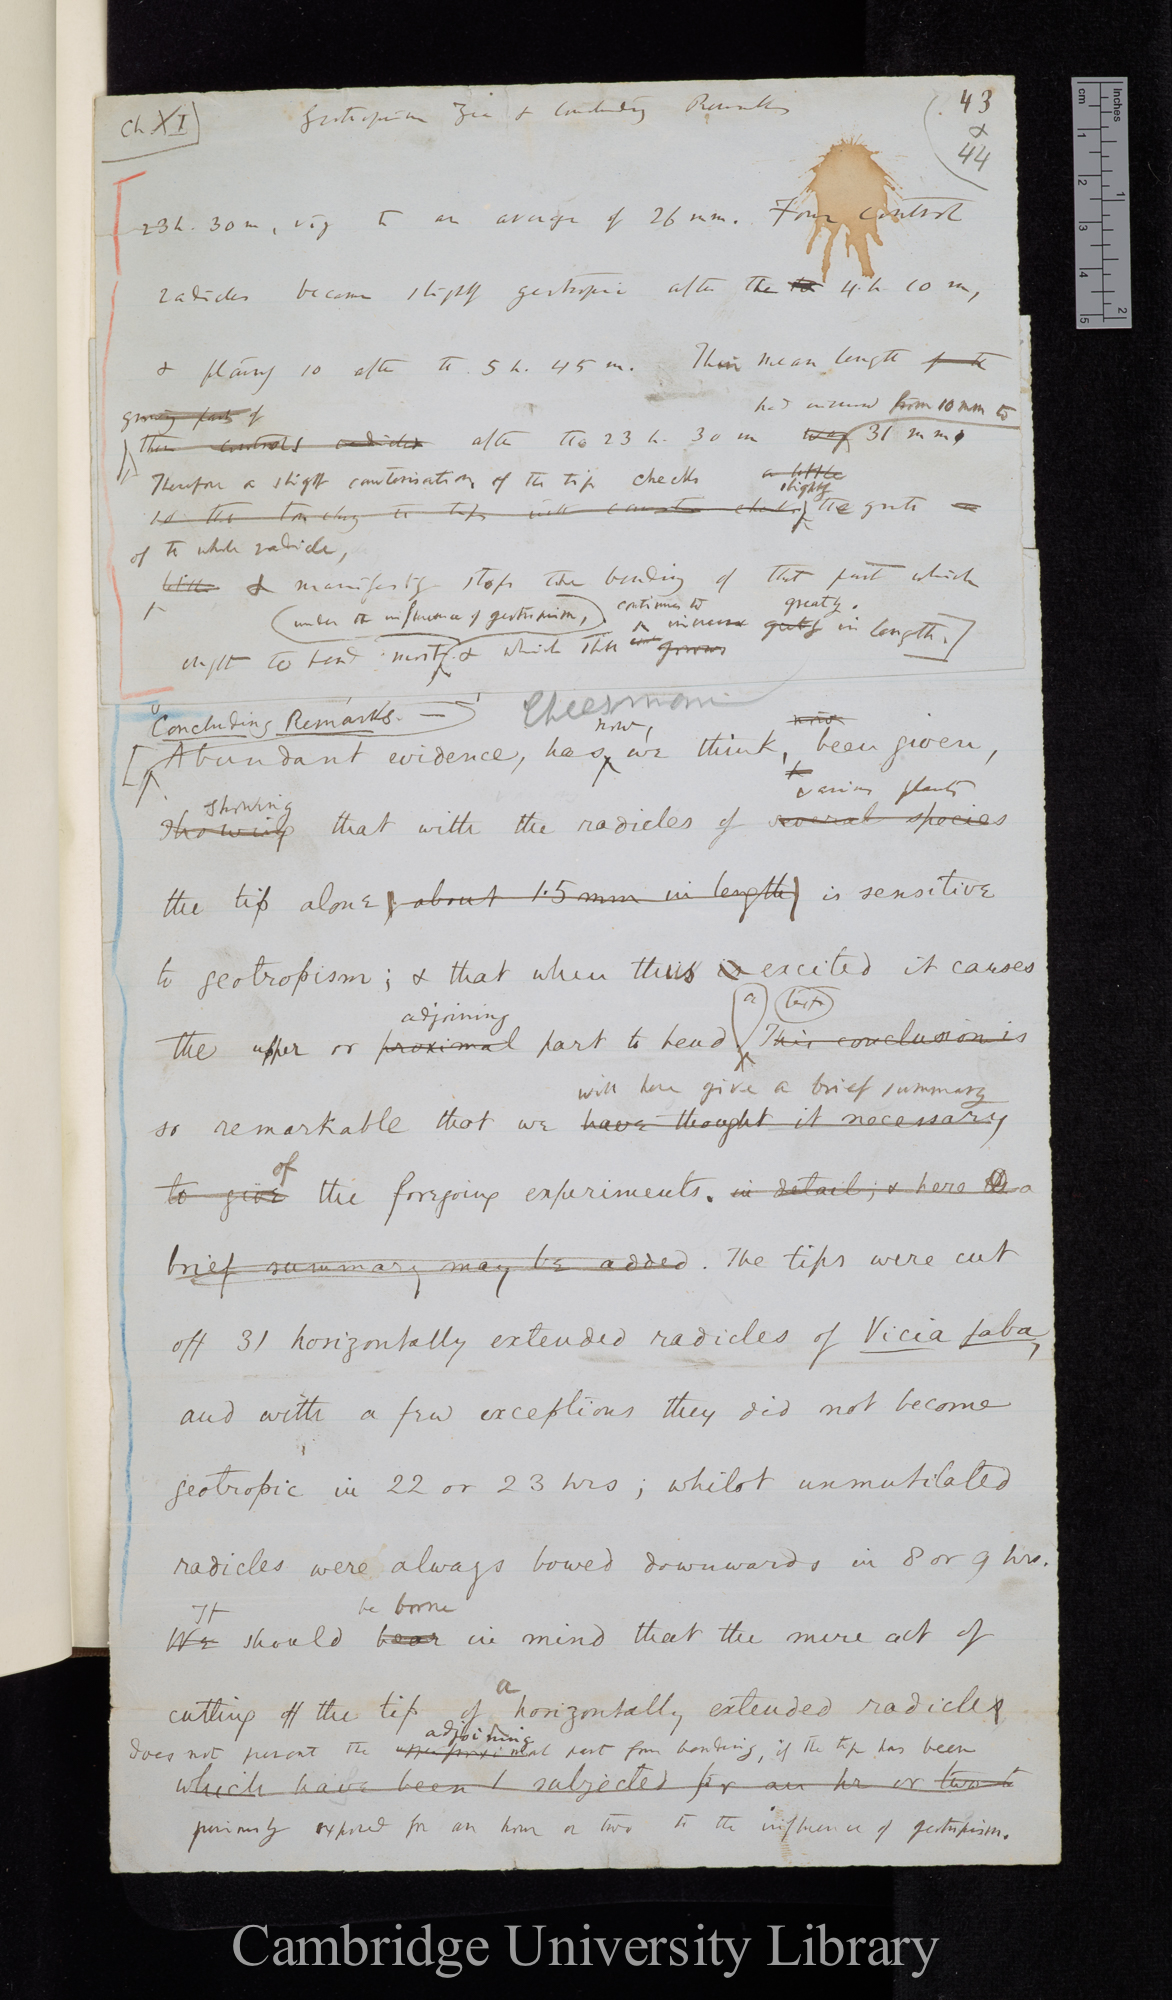 Ch XI
Geotropism Zea & Concluding Remarks
43
&
44
23 h. 30 m, viz to an average of 26 mm. Four control
radicles became slightly geotropic after the to 4 h 10 m,
& plainly so after the 5 h. 45 m. Their mean length of the
growing parts of
had increased from 10 mm to
then controls radicles after the 23 h. 30 m was 31 mm.
Therefore a slight cauterisation of the tip checks a little
slightly
so the touching the tips with caustic checks the growth
of the whole radicle,
little & manifestly stops the bending of that part which
under the influence of geotropism, continues to greatly.
ought to bend most, & which still grows increase greatly in length.
Cheesman
Concluding Remarks. —
now, now
Abundant evidence, has, we think, been given,
showing various plants
showing that with the radicles of several species
the tip alone, about 1.5 mm in length, is sensitive
to geotropism; & that when thus is excited it causes
adjoining a fact
the upper or proximal part to bend. This conclusion is
will here give a brief summary
so remarkable that we have thought it necessary
of
to give the foregoing experiments. in detail; & here is a
brief summary may be added. The tips were cut
off 31 horizontally extended radicles of Vicia faba,
and with a few exceptions they did not become
geotropic in 22 or 23 hrs; whilst unmutilated
radicles were always bowed downwards in 8 or 9 hrs.
It be borne
We should bear in mind that the mere act of
a
cutting off the tip of horizontally extended radicles
adjoining
does not prevent the upper proximal part from bending, if the tip has been
which have been subjected for an hr or two to
previously exposed for an hour or two to the influence of geotropism.
cm
Inches
1
2
3
4
5
1
2
Cambridge University Library